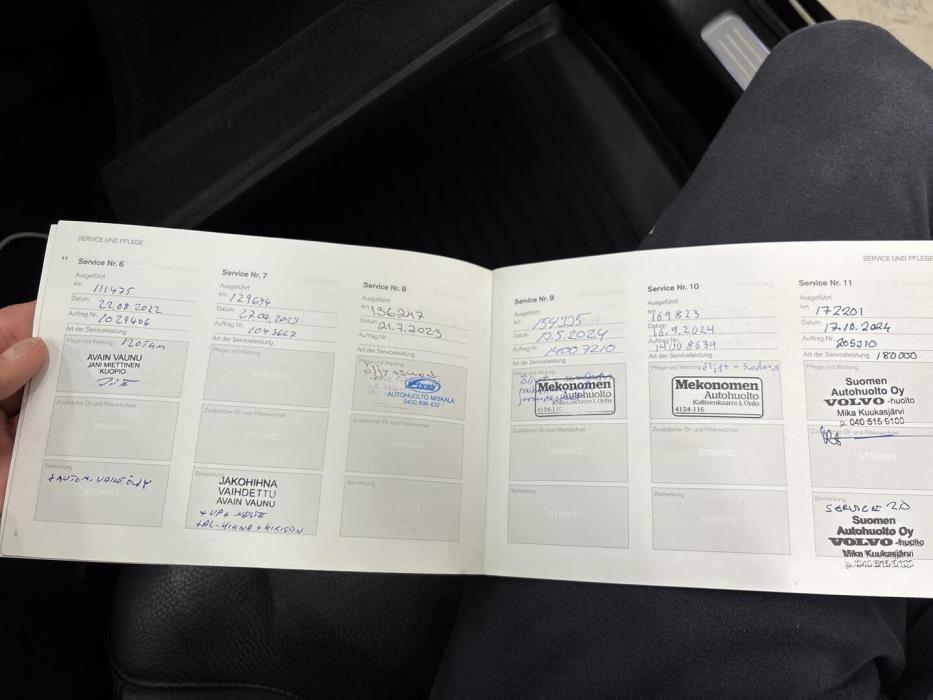 SERVICE UND PFLEGE
Service Nr. 6
Ausgeführt
km 111475
Datum 22.08.2022
Auftrag Nr. 1029406
Art der Serviceleistung
Pflege und Wartung 120Tkm
AVAIN VAUNU
JANI MIETTINEN
KUOPIO
Zusätzlicher Öl- und Filterwechsel
STEMPEL
Bemerkung
+AUTOM. VAIHT.ÖLJY
STEMPEL
Service Nr. 7
Ausgeführt
km 129694
Datum 27.04.2023
Auftrag Nr. 1043667
Art der Serviceleistung
Pflege und Wartung
STEMPEL
Zusätzlicher Öl- und Filterwechsel
STEMPEL
Bemerkung
JAKOHIHNA
VAIHDETTU
AVAIN VAUNU
+ VP + NESTE
+AL-HIHNA + KIRISIN
Service Nr. 8
Ausgeführt
km 136247
Datum 21.7.2023
Auftrag Nr.
Art der Serviceleistung
Pflege und Wartung
öljy + suod
AUTOHUOLTO MISKALA
0400 896 432
Zusätzlicher Öl- und Filterwechsel
STEMPEL
Bemerkung
STEMPEL
SERVICE UND PFLEGE
Service Nr. 9
Ausgeführt
km
Datum 10.5.2024
Auftrag Nr. 14007210
Art der Serviceleistung
Pflege und Wartung
Mekonomen
Autohuolto
Kallisenkaarre 1, Oulu
4124-116
Zusätzlicher Öl- und Filterwechsel
STEMPEL
Bemerkung
STEMPEL
Service Nr. 10
Ausgeführt
km 169823
Datum 16.9.2024
Auftrag Nr. 14008639
Art der Serviceleistung
Pflege und Wartung öljyt + suodatin
Mekonomen
Autohuolto
Kallisenkaarre 1, Oulu
4124-116
Zusätzlicher Öl- und Filterwechsel
STEMPEL
Bemerkung
STEMPEL
Service Nr. 11
Ausgeführt
km 172201
Datum 17.10.2024
Auftrag Nr. 205310
Art der Serviceleistung 180000
Pflege und Wartung
Suomen
Autohuolto Oy
VOLVO -huolto
Mika Kuukasjärvi
p. 040 515 5100
Zusätzlicher Öl- und Filterwechsel
STEMPEL
Bemerkung
SERVICE 2.0
Suomen
Autohuolto Oy
VOLVO -huolto
Mika Kuukasjärvi
p. 040 515 5100